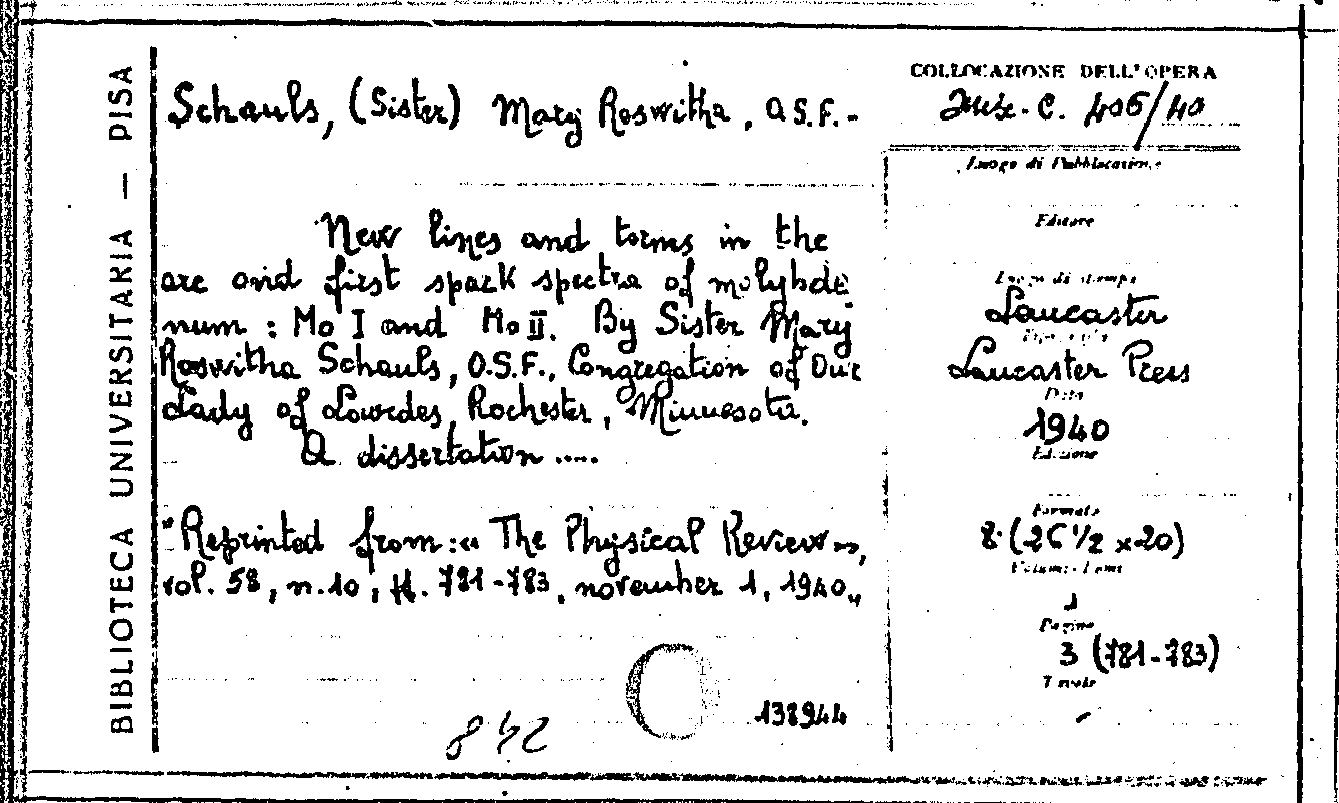 BIBLIOTECA UNIVERSITARIA — PISA
Schauls, (Sister) Mary Roswitha, O.S.F.-
New lines and terms in the
arc and first spark spectra of molybde
num : Mo I and Mo II. By Sister Mary
Roswitha Schauls, O.S.F., Congregation of Our
Lady of Lourdes, Rochester, Minnesota.
A dissertation .....
"Reprinted from:« The Physical Review»,
vol. 58, n.10, pp. 781-783, november 1, 1940„
842
138944
COLLOCAZIONE DELL'OPERA
Misc. C. 406/40
Luogo di Pubblicazione
Editore
Luogo di stampa
Lancaster
Tipografia
Lancaster Press
Data
1940
Edizione
Formato
8° (26 1/2 x 20)
Volumi-Tomi
1
Pagine
3 (781-783)
Tavole
-